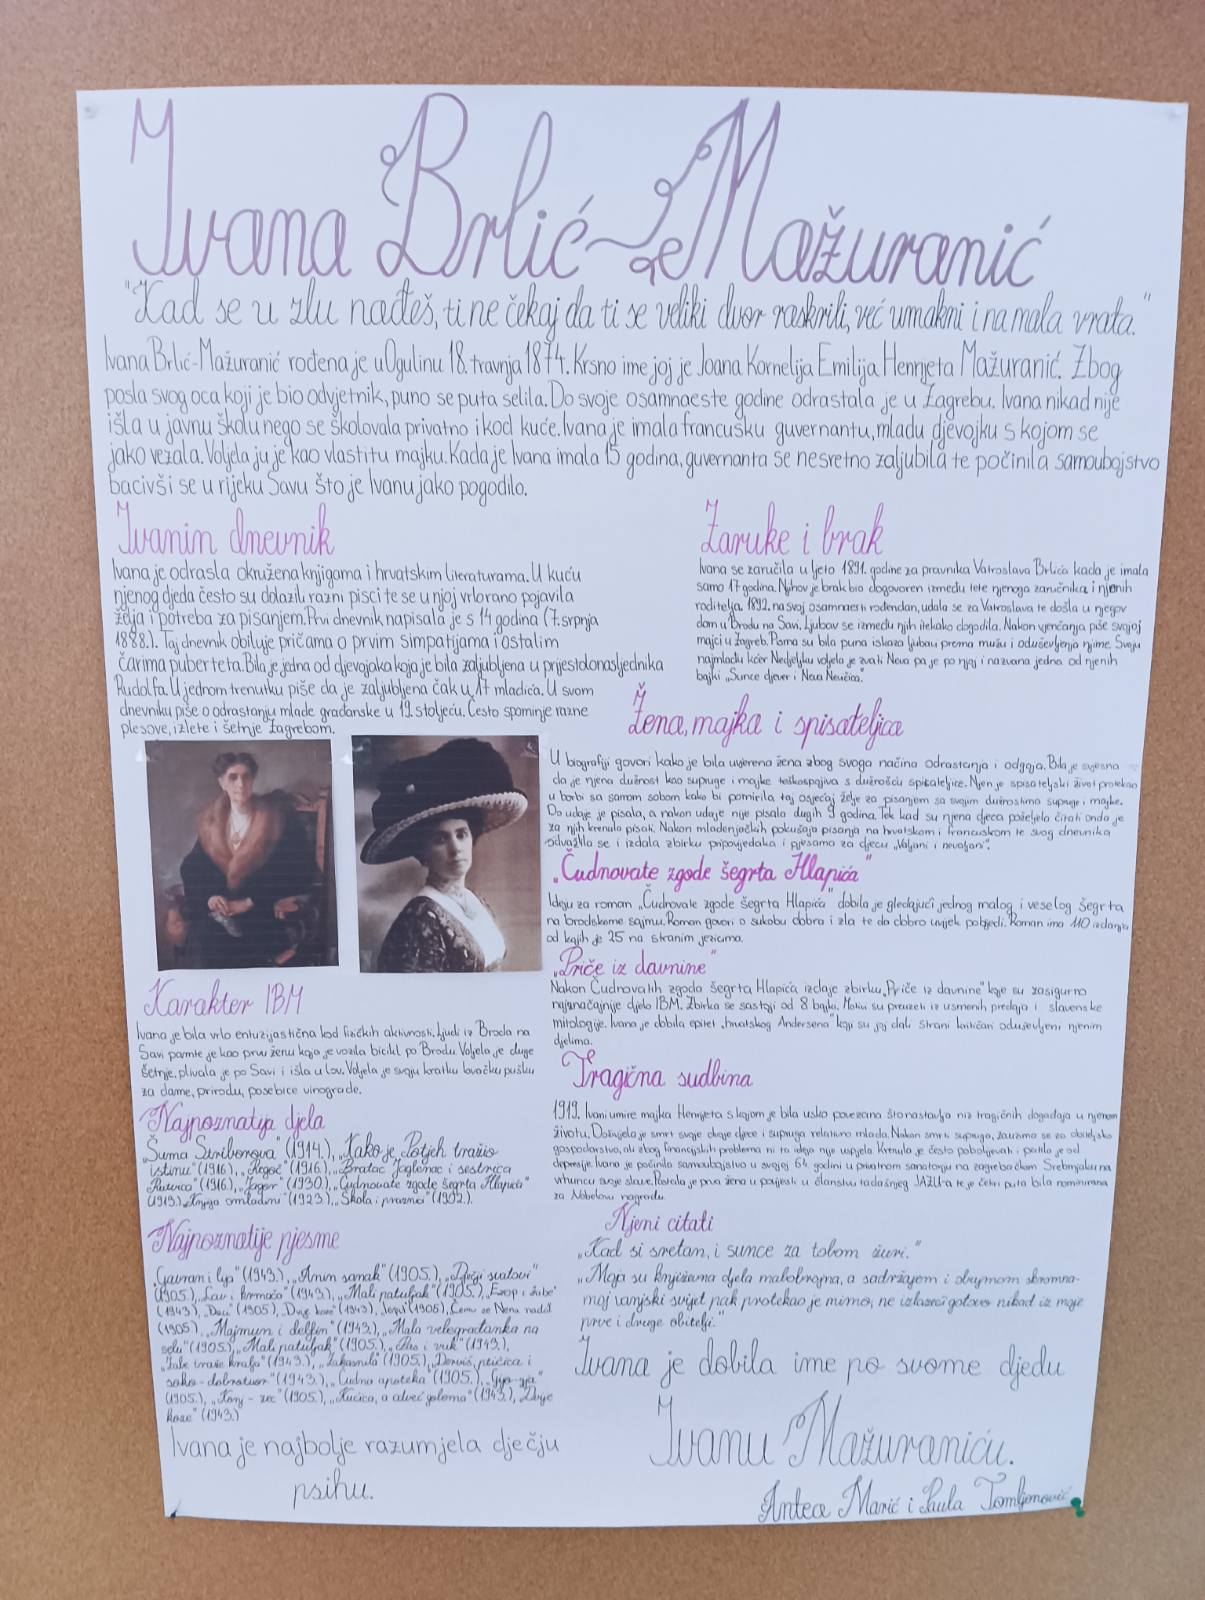 Ivana Brlić-Mažuranić
"Kad se u zlu nađeš, ti ne čekaj da ti se veliki dvor raskrili, već umakni i na mala vrata."
Ivana Brlić-Mažuranić rođena je u Ogulinu 18. travnja 1874. Krsno ime joj je Joana Kornelija Emilija Henrijeta Mažuranić. Zbog
posla svog oca koji je bio odvjetnik, puno se puta selila. Do svoje osamnaeste godine odrastala je u Zagrebu. Ivana nikad nije
išla u javnu školu nego se školovala privatno i kod kuće. Ivana je imala francusku guvernantu, mladu djevojku s kojom se
jako vezala. Voljela ju je kao vlastitu majku. Kada je Ivana imala 15 godina, guvernanta se nesretno zaljubila te počinila samoubojstvo
bacivši se u rijeku Savu što je Ivanu jako pogodilo.
Ivanin dnevnik
Ivana je odrasla okružena knjigama i hrvatskim literaturama. U kuću
njenog djeda često su dolazili razni pisci te se u njoj vrlo rano pojavila
želja i potreba za pisanjem. Prvi dnevnik napisala je s 14 godina (7. srpnja
1888.). Taj dnevnik obiluje pričama o prvim simpatijama i ostalim
čarima puberteta. Bila je jedna od djevojaka koja je bila zaljubljena u prijestolonasljednika
Rudolfa. U jednom trenutku piše da je zaljubljena čak u 17 mladića. U svom
dnevniku piše o odrastanju mlade građanske u 19. stoljeću. Često spominje razne
plesove, izlete i šetnje Zagrebom.
Zaruke i brak
Ivana se zaručila u ljeto 1891. godine za pravnika Vatroslava Brlića kada je imala
samo 17 godina. Njihov je brak bio dogovoren između tete njenoga zaručnika i njenih
roditelja. 1892. na svoj osamnaesti rođendan, udala se za Vatroslava te došla u njegov
dom u Brodu na Savi. Ljubav se između njih itekako dogodila. Nakon vjenčanja piše svojoj
majci u Zagreb. Pisma su bila puna iskaza ljubavi prema mužu i oduševljenja njime. Svoju
najmlađu kćer Nedjeljku voljela je zvati Neva pa je po njoj i nazvana jedna od njenih
bajki „Sunce djever i Neva Nevičica".
Žena, majka i spisateljica
U biografiji govori kako je bila uvjerena žena zbog svoga načina odrastanja i odgoja. Bila je svjesna
da je njena dužnost kao supruge i majke teško spojiva s dužnošću spisateljice. Njen je spisateljski život protekao
u borbi sa samom sobom kako bi pomirila taj osjećaj želje za pisanjem sa svojim dužnostima supruge i majke.
Do udaje je pisala, a nakon udaje nije pisalo dugih 9 godina. Tek kad su njena djeca poželjela čitati onda je
za njih krenula pisati. Nakon mladenjačkih pokušaja pisanja na hrvatskom i francuskom te svog dnevnika
odvažila se i izdala zbirku pripovjedaka i pjesama za djecu „Valjani i nevaljani".
„Čudnovate zgode šegrta Hlapića"
Ideju za roman „Čudnovate zgode šegrta Hlapića" dobila je gledajući jednog malog i veselog šegrta
na brodskome sajmu. Roman govori o sukobu dobra i zla te da dobro uvijek pobjedi. Roman ima 110 izdanja
od kojih je 25 na stranim jezicima.
„Priče iz davnine"
Nakon Čudnovatih zgoda šegrta Hlapića izdaje zbirku „Priče iz davnine" koje su zasigurno
najznačajnije djelo IBM. Zbirka se sastoji od 8 bajki. Motivi su preuzeti iz usmenih predaja i slavenske
mitologije. Ivana je dobila epitet „hrvatskog Andersena" koji su joj dali strani kritičari oduševljeni njenim
djelima.
Karakter IBM
Ivana je bila vrlo entuzijastična kod fizičkih aktivnosti. Ljudi iz Broda na
Savi pamte je kao prvu ženu koja je vozila bicikl po Brodu. Voljela je duge
šetnje, plivala je po Savi i išla u lov. Voljela je svoju kratku lovačku pušku
za dame, prirodu, posebice vinograde.
Najpoznatija djela
„Šuma Striborova" (1914.), „Kako je Potjeh tražio
istinu" (1916.), „Regoč" (1916.), „Bratac Jaglenac i sestrica
Rutvica" (1916.), „Jagor" (1930.), „Čudnovate zgode šegrta Hlapića"
(1913.), „Knjiga omladini" (1923.), „Škola i praznici" (1902.).
Tragična sudbina
1919. Ivani umire majka Henrijeta s kojom je bila usko povezana što nastavlja niz tragičnih događaja u njenom
životu. Doživjela je smrt svoje dvoje djece i supruga relativno mlada. Nakon smrti supruga, zauzima se za obiteljsko
gospodarstvo, ali zbog financijskih problema ni ta ideja nije uspjela. Krenula je često poboljevati i patila je od
depresije. Ivana je počinila samoubojstvo u svojoj 64. godini u privatnom sanatoriju na zagrebačkom Srebrnjaku na
vrhuncu svoje slave. Postala je prva žena u povijesti u članstvu tadašnjeg JAZU-a te je četiri puta bila nominirana
za Nobelovu nagradu.
Najpoznatije pjesme
„Gavran i lija" (1943.), „Amin samak" (1905.), „Dječji svatovi"
(1905.), „Lav i krmača" (1943.), „Mali patuljak" (1905.), „Ezop i žabe"
(1943.), (1905.), Dvije koze" (1943.), (1905.), Čemu se Nena nada?
(1905.), „Majmun i delfin" (1943.), „Mala velegrađanka na
selu" (1905.), „Mali patuljak" (1905.), „Pas i vuk" (1943.),
„Žabe traže kralja" (1943.), „Zakasnila" (1905.), Derviš, ptičica i
soko - dobrotvor" (1943.), „Čudna apoteka" (1905.),
(1905.), „Konj - zec" (1905.), „Kucica, a al već golema" (1943.), „Dvije
koze" (1943.)
Ivana je najbolje razumjela dječju
psihu.
Njeni citati
„Kad si sretan, i sunce za tobom žuri."
„Moja su književna djela malobrojna, a sadržajem i obujmom skromna-
moj vanjski svijet pak protekao je mimo, ne izlazeći gotovo nikad iz moje
prve i druge obitelji."
Ivana je dobila ime po svome djedu
Ivanu Mažuraniću.
Antea Marić i Paula Tomljenović